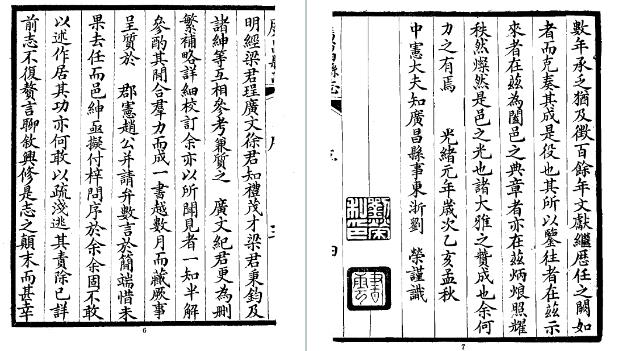 明經梁君珵廣文徐君知禮茂才梁君秉鈞及
諸紳等互相參考兼質之　廣文紀君更為刪
繁補略詳細校訂余亦以所聞見者一知半解
參酌其間合羣力而成一書越數月而蕆厥事
呈質於　郡憲趙公并請弁數言於簡端惜未
果去任而邑紳亟擬付梓問序於余余固不敢
以述作居其功亦何敢以疏淺逃其責除已詳
前志不復贅言聊敘興修是志之顛末而甚幸
6
數年承乏猶及徵百餘年文獻繼歷任之闕如
者而克奏其成是役也其所以鑒往者在茲示
來者在茲為闔邑之典章者亦在茲炳烺照耀
秩然燦然是邑之光也諸大雅之贊成也余何
力之有焉　光緒元年歲次乙亥孟秋
中憲大夫知廣昌縣事東浙劉　榮謹識
7